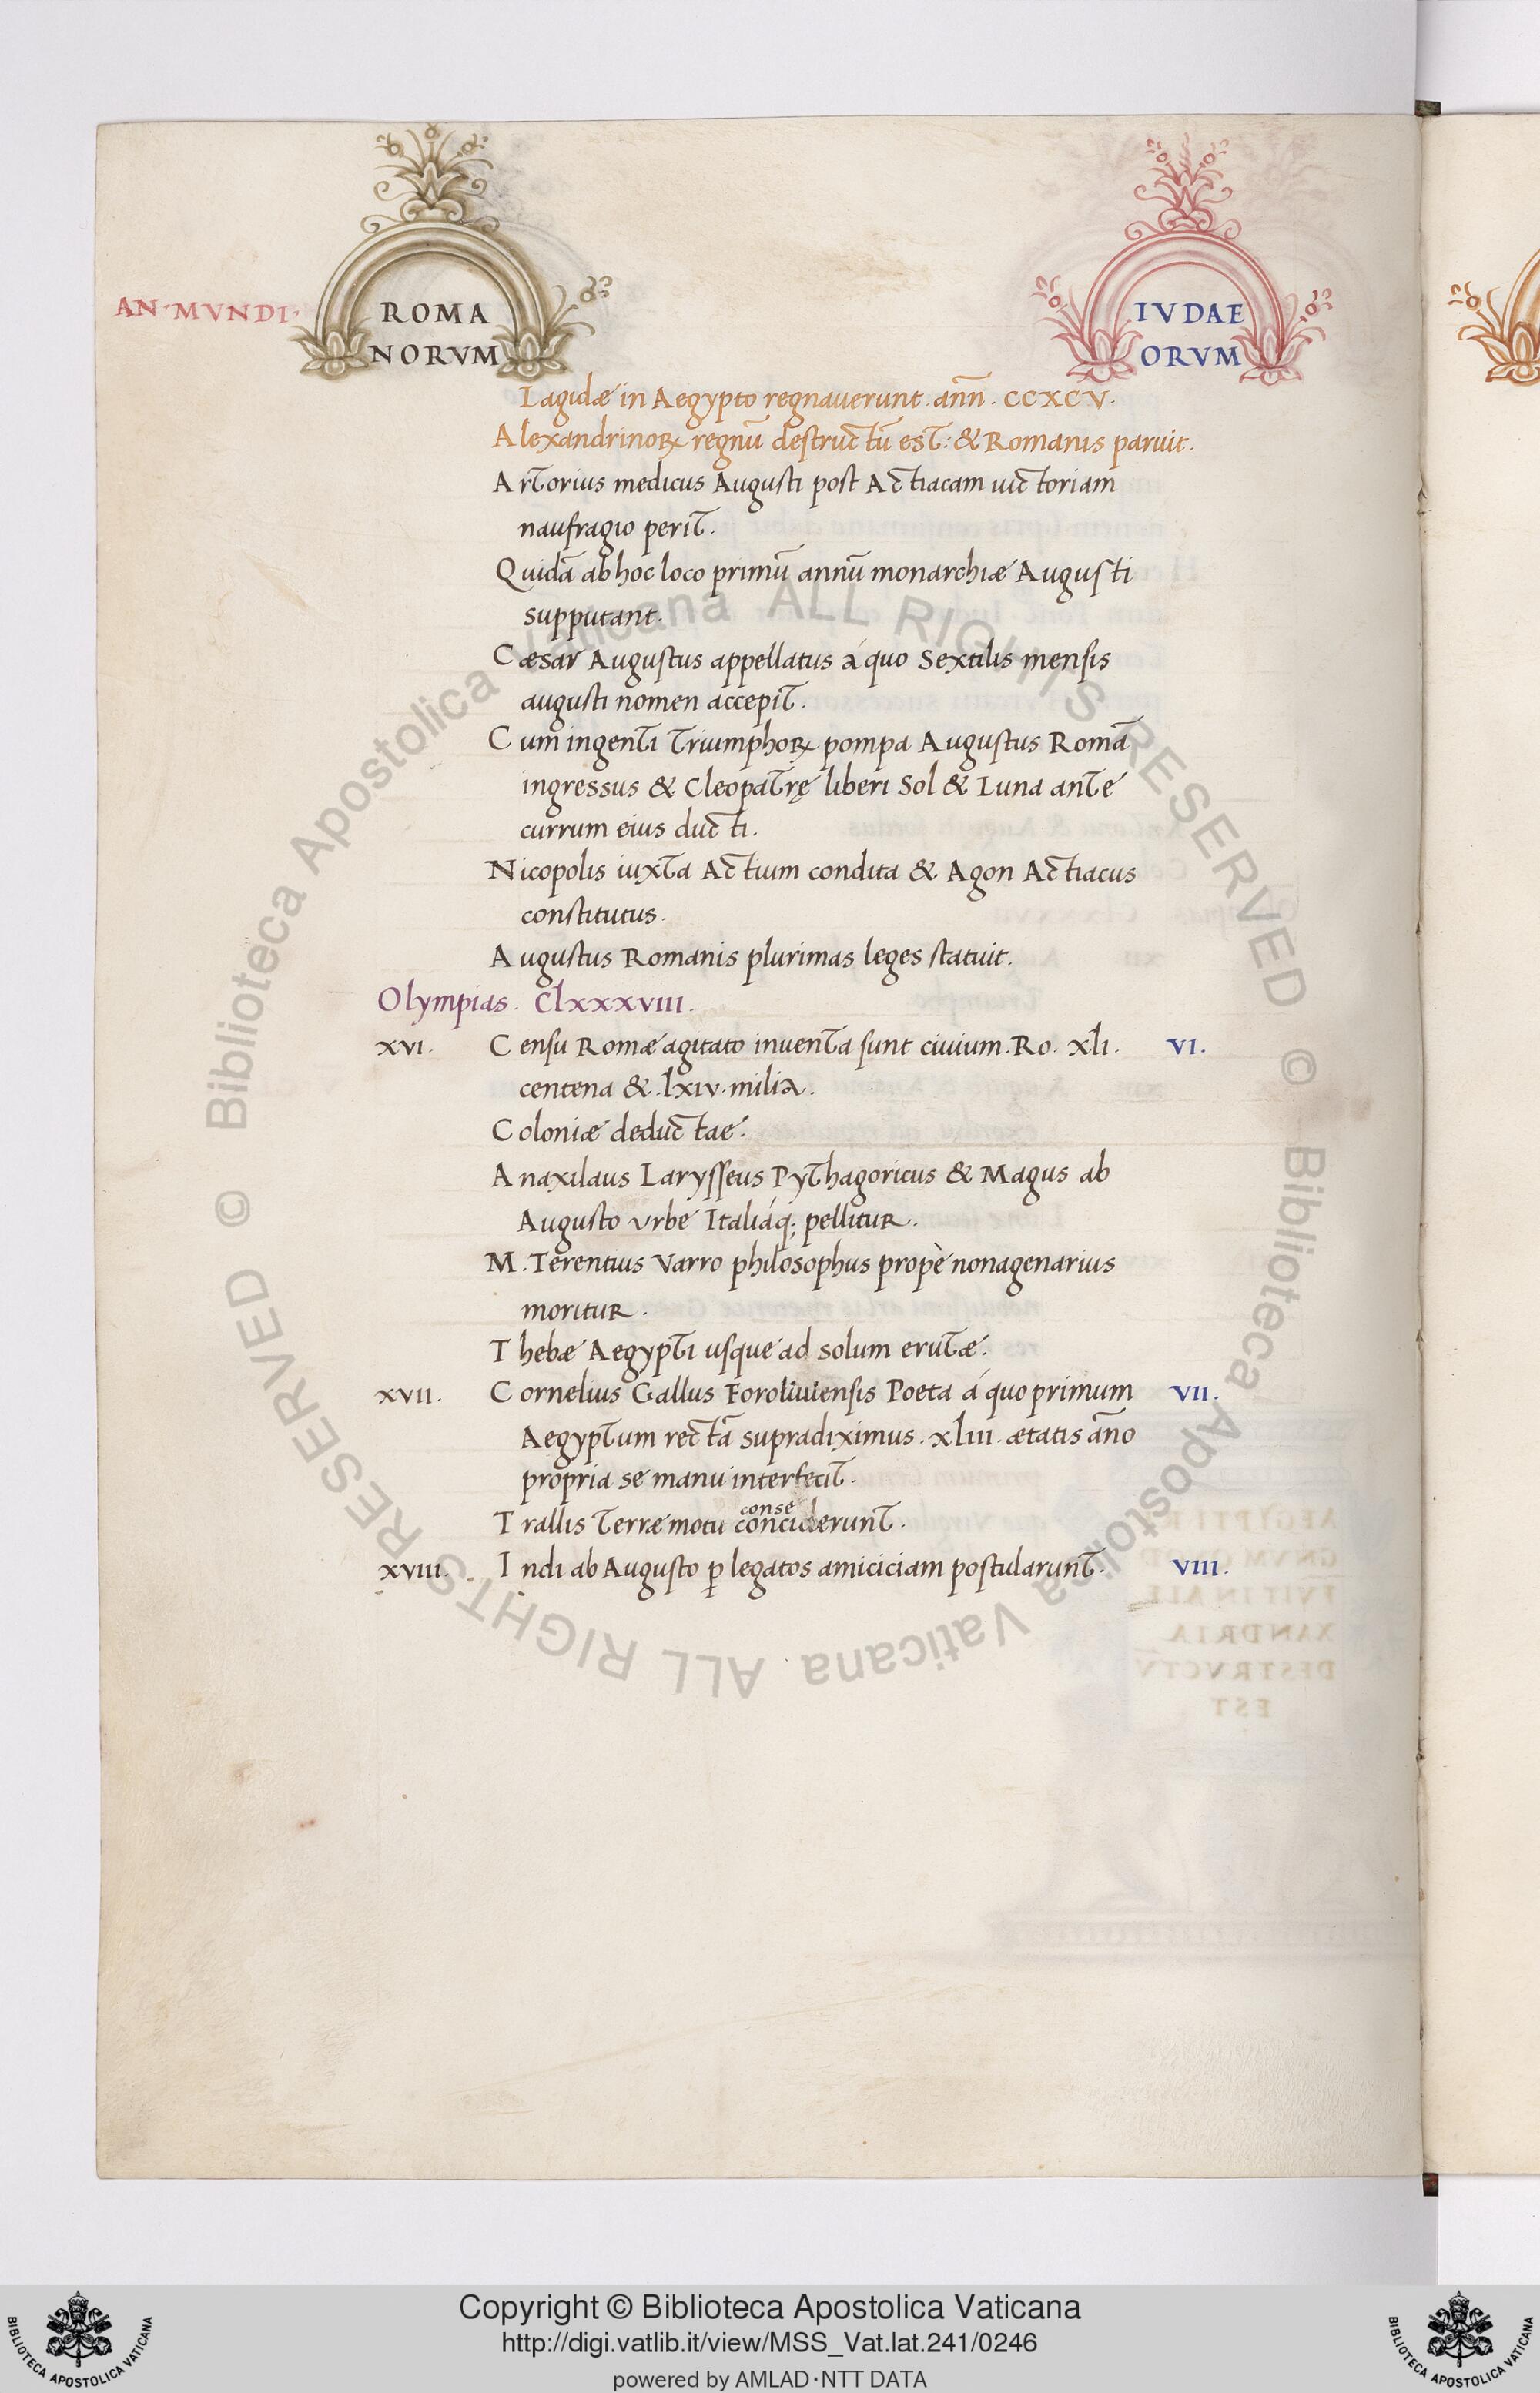 AN·MVNDI·
ROMA
NORVM
IVDAE
ORVM
Lagidæ in Aegypto regnauerunt . añn . CCXCV .
Alexandrinoꝝ regnū destructū est : & Romanis paruit .
Artorius medicus Augusti post Actiacam uictoriam
naufragio perit .
Quidā ab hoc loco primū annū monarchiæ Augusti
supputant .
Cæsar Augustus appellatus á quo Sextilis mensis
augusti nomen accepit .
Cum ingenti triumphoꝝ pompa Augustus Romā
ingressus & Cleopatrę liberi Sol & Luna ante
currum eius ducti .
Nicopolis iuxta Actium condita & Agon Actiacus
constitutus .
Augustus Romanis plurimas leges statuit .
Olympias . Clxxxviii .
xvi . Censu Romæ agitato inuenta sunt ciuium . Ro . xli . VI .
centena & . lxiv . milia .
Coloniæ deductae .
Anaxilaus Larysseus Pythagoricus & Magus ab
Augusto vrbe Italiáq; pellitur .
M . Terentius Varro philosophus propè nonagenarius
moritur .
Thebæ Aegypti usque ad solum erutæ .
xvii . Cornelius Gallus Foroliuiensis Poeta á quo primum VII .
Aegyptum rectā supradiximus . xliii . ætatis āno
propria se manu interfecit .
conse
Trallis terræ motu conciderunt .
xviii . Indi ab Augusto ꝑ legatos amiciciam postularunt . VIII .
© Biblioteca Apostolica Vaticana ALL RIGHTS RESERVED
© Biblioteca Apostolica Vaticana ALL RIGHTS RESERVED
Copyright © Biblioteca Apostolica Vaticana
http://digi.vatlib.it/view/MSS_Vat.lat.241/0246
powered by AMLAD·NTT DATA
BIBLIOTECA APOSTOLICA VATICANA
BIBLIOTECA APOSTOLICA VATICANA